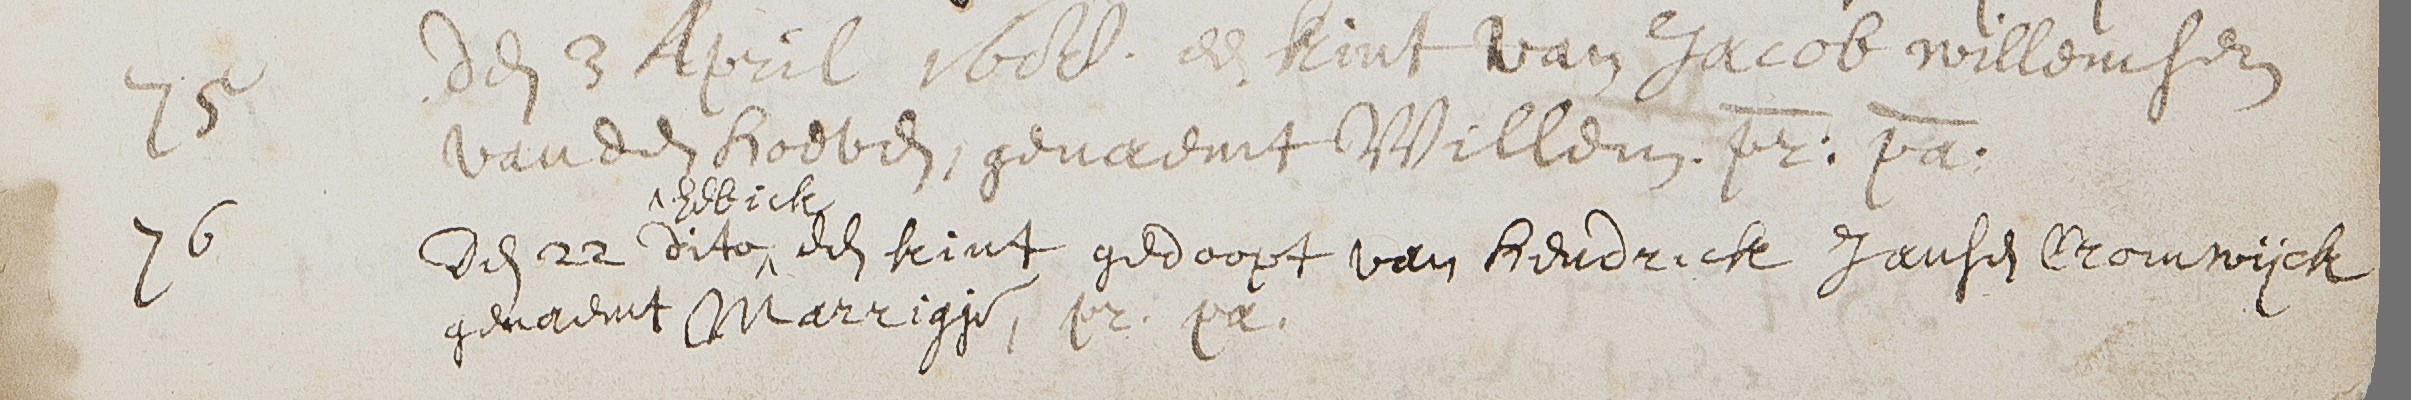 75 den 3 April 1688. een kint van Jacob willemsen
van den hoeven, genaemt Willem. pr: pa:
76 Den 22 dito, een kint gedoopt van hendrick Jansen Cromwijck
genaemt Marrigje, pr. pa.